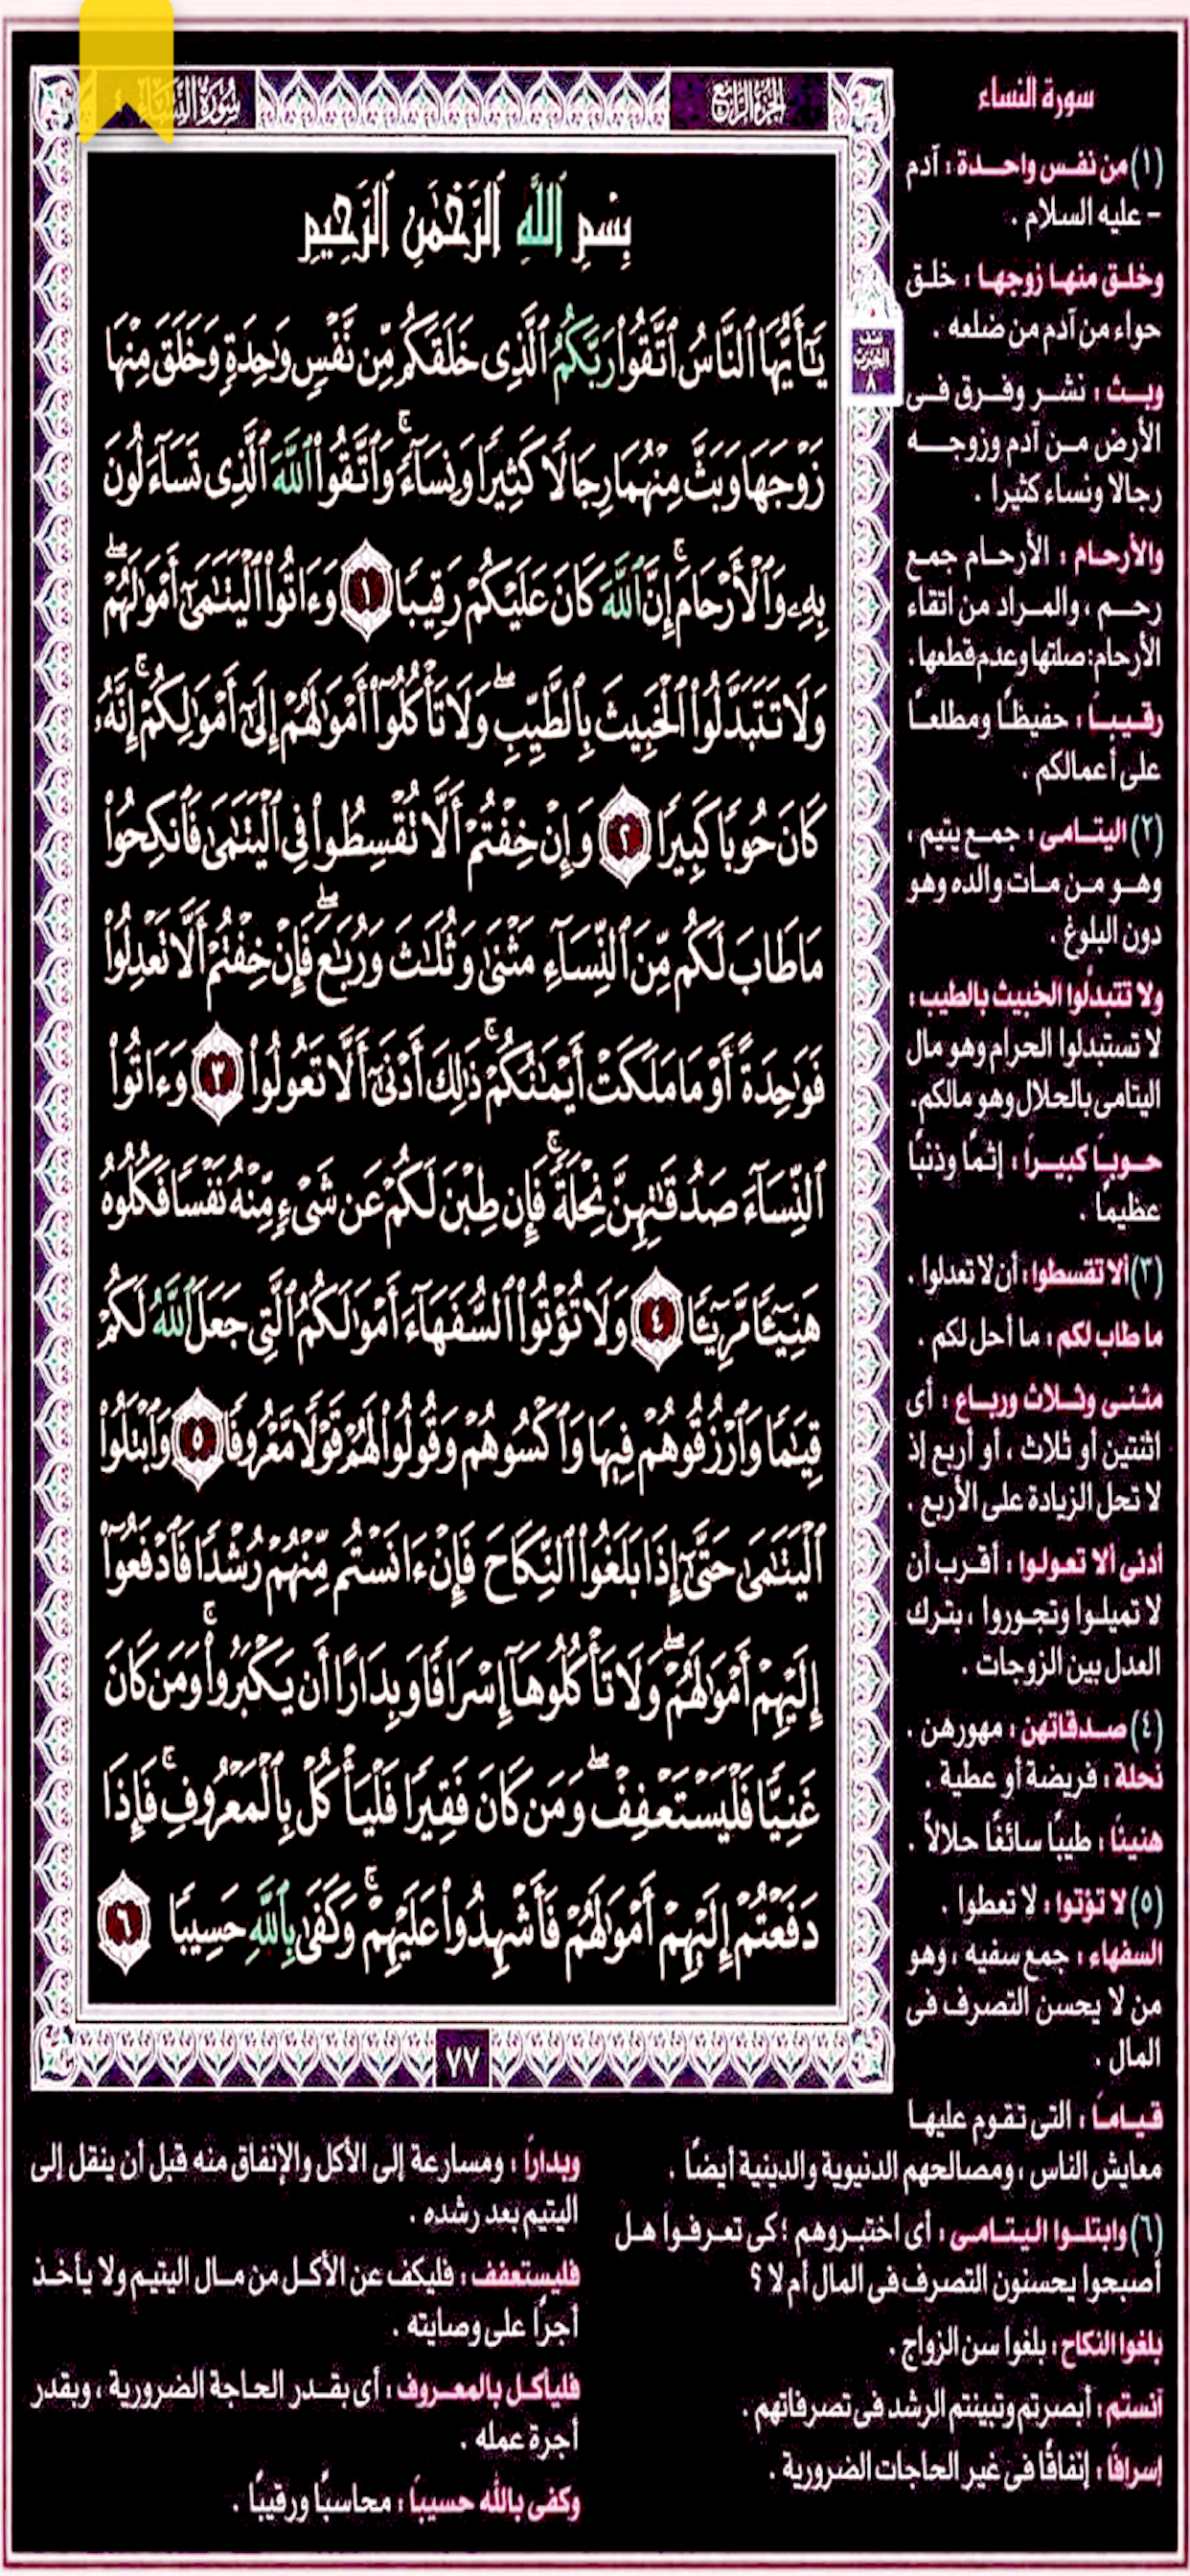 الجزء الرابع
سورة النساء ٤
بِسْمِ ٱللَّهِ ٱلرَّحْمَٰنِ ٱلرَّحِيمِ
يَٰٓأَيُّهَا ٱلنَّاسُ ٱتَّقُوا۟ رَبَّكُمُ ٱلَّذِى خَلَقَكُم مِّن نَّفْسٍ وَٰحِدَةٍ وَخَلَقَ مِنْهَا
زَوْجَهَا وَبَثَّ مِنْهُمَا رِجَالًا كَثِيرًا وَنِسَآءً ۚ وَٱتَّقُوا۟ ٱللَّهَ ٱلَّذِى تَسَآءَلُونَ
بِهِۦ وَٱلْأَرْحَامَ ۚ إِنَّ ٱللَّهَ كَانَ عَلَيْكُمْ رَقِيبًا ١ وَءَاتُوا۟ ٱلْيَتَٰمَىٰٓ أَمْوَٰلَهُمْ ۖ
وَلَا تَتَبَدَّلُوا۟ ٱلْخَبِيثَ بِٱلطَّيِّبِ ۖ وَلَا تَأْكُلُوٓا۟ أَمْوَٰلَهُمْ إِلَىٰٓ أَمْوَٰلِكُمْ ۚ إِنَّهُۥ
كَانَ حُوبًا كَبِيرًا ٢ وَإِنْ خِفْتُمْ أَلَّا تُقْسِطُوا۟ فِى ٱلْيَتَٰمَىٰ فَٱنكِحُوا۟
مَا طَابَ لَكُم مِّنَ ٱلنِّسَآءِ مَثْنَىٰ وَثُلَٰثَ وَرُبَٰعَ ۖ فَإِنْ خِفْتُمْ أَلَّا تَعْدِلُوا۟
فَوَٰحِدَةً أَوْ مَا مَلَكَتْ أَيْمَٰنُكُمْ ۚ ذَٰلِكَ أَدْنَىٰٓ أَلَّا تَعُولُوا۟ ٣ وَءَاتُوا۟
ٱلنِّسَآءَ صَدُقَٰتِهِنَّ نِحْلَةً ۚ فَإِن طِبْنَ لَكُمْ عَن شَىْءٍ مِّنْهُ نَفْسًا فَكُلُوهُ
هَنِيٓـًٔا مَّرِيٓـًٔا ٤ وَلَا تُؤْتُوا۟ ٱلسُّفَهَآءَ أَمْوَٰلَكُمُ ٱلَّتِى جَعَلَ ٱللَّهُ لَكُمْ
قِيَٰمًا وَٱرْزُقُوهُمْ فِيهَا وَٱكْسُوهُمْ وَقُولُوا۟ لَهُمْ قَوْلًا مَّعْرُوفًا ٥ وَٱبْتَلُوا۟
ٱلْيَتَٰمَىٰ حَتَّىٰٓ إِذَا بَلَغُوا۟ ٱلنِّكَاحَ فَإِنْ ءَانَسْتُم مِّنْهُمْ رُشْدًا فَٱدْفَعُوٓا۟
إِلَيْهِمْ أَمْوَٰلَهُمْ ۖ وَلَا تَأْكُلُوهَآ إِسْرَافًا وَبِدَارًا أَن يَكْبَرُوا۟ ۚ وَمَن كَانَ
غَنِيًّا فَلْيَسْتَعْفِفْ ۖ وَمَن كَانَ فَقِيرًا فَلْيَأْكُلْ بِٱلْمَعْرُوفِ ۚ فَإِذَا
دَفَعْتُمْ إِلَيْهِمْ أَمْوَٰلَهُمْ فَأَشْهِدُوا۟ عَلَيْهِمْ ۚ وَكَفَىٰ بِٱللَّهِ حَسِيبًا ٦
٧٧
سورة النساء
(١) من نفس واحدة : آدم
- عليه السلام .
وخلق منها زوجها : خلق
حواء من آدم من ضلعه .
وبث : نشر وفرق فى
الأرض من آدم وزوجه
رجالا ونساء كثيرا .
والأرحام : الأرحام جمع
رحم ، والمراد من اتقاء
الأرحام: صلتها وعدم قطعها.
رقيباً : حفيظًا ومطلعًا
على أعمالكم .
(٢) اليتامى : جمع يتيم ،
وهو من مات والده وهو
دون البلوغ .
ولا تتبدلوا الخبيث بالطيب :
لا تستبدلوا الحرام وهو مال
اليتامى بالحلال وهو مالكم.
حوباً كبيراً : إثمًا وذنبًا
عظيمًا .
(٣) ألا تقسطوا : أن لا تعدلوا .
ما طاب لكم : ما أحل لكم .
مثنى وثلاث ورباع : أى
اثنتين أو ثلاث ، أو أربع إذ
لا تحل الزيادة على الأربع .
أدنى ألا تعولوا : أقرب أن
لا تميلوا وتجوروا ، بترك
العدل بين الزوجات .
(٤) صدقاتهن : مهورهن .
نحلة : فريضة أو عطية .
هنيئًا : طيبًا سائغًا حلالاً .
(٥) لا تؤتوا : لا تعطوا .
السفهاء : جمع سفيه ، وهو
من لا يحسن التصرف فى
المال .
قياماً : التى تقوم عليها
معايش الناس ، ومصالحهم الدنيوية والدينية أيضًا .
(٦) وابتلوا اليتامى : أى اختبروهم ؛ كى تعرفوا هل
أصبحوا يحسنون التصرف فى المال أم لا ؟
بلغوا النكاح : بلغوا سن الزواج .
آنستم : أبصرتم وتبينتم الرشد فى تصرفاتهم .
إسرافًا : إنفاقًا فى غير الحاجات الضرورية .
وبداراً : ومسارعة إلى الأكل والإنفاق منه قبل أن ينقل إلى
اليتيم بعد رشده .
فليستعفف : فليكف عن الأكل من مال اليتيم ولا يأخذ
أجرًا على وصايته .
فليأكل بالمعروف : أى بقدر الحاجة الضرورية ، وبقدر
أجرة عمله .
وكفى بالله حسيباً : محاسبًا ورقيبًا .